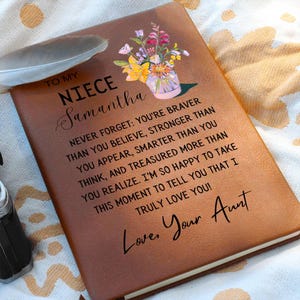 TO MY
NIECE
Samantha
NEVER FORGET: YOU'RE BRAVER
THAN YOU BELIEVE, STRONGER THAN
YOU APPEAR, SMARTER THAN YOU
THINK, AND TREASURED MORE THAN
YOU REALIZE. I'M SO HAPPY TO TAKE
THIS MOMENT TO TELL YOU THAT I
TRULY LOVE YOU!
Love, Your Aunt